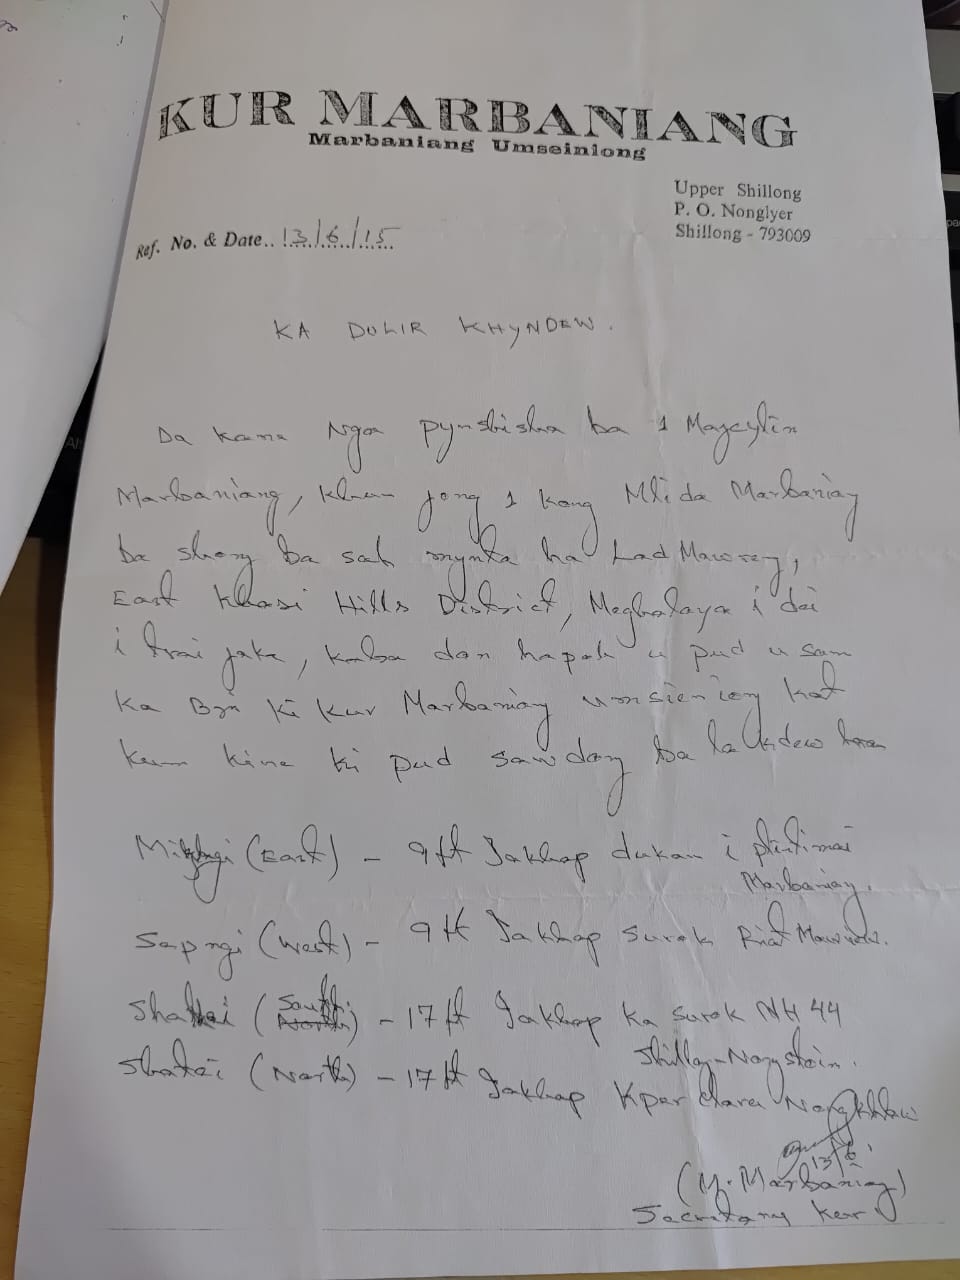 KUR MARBANIANG
Marbaniang Umseinlong
Upper Shillong
P. O. Nonglyer
Shillong - 793009
Ref. No. & Date.. 13/6/15
KA DULIR KHYNDEW.
Da kane Nga pynshisha ba 1
Marbaniang, khun jong 1 kong Mlida Marbaniang
ba shong ba sah mynta ha Lad Mawreng,
East Khasi Hills District, Meghalaya i dei
i trai jaka, kaba don hapoh u pud u sam
ka Bri Ki Kur Marbaniang umsienlong kat
kum kine ki pud sawdong ba la kdew
Mihngi (East) - 9 ft Jakhap dukan i
Marbaniang.
Sepngi (West) - 9 ft Jakhap Surok Riat
(South) - 17 ft Jakhap Ka Surok NH 44
Shillong-Nongstoin.
(North) - 17 ft Jakhap Kper Clara Nongkhlaw
13/6
(M. Marbaniang)
Secretary Kur